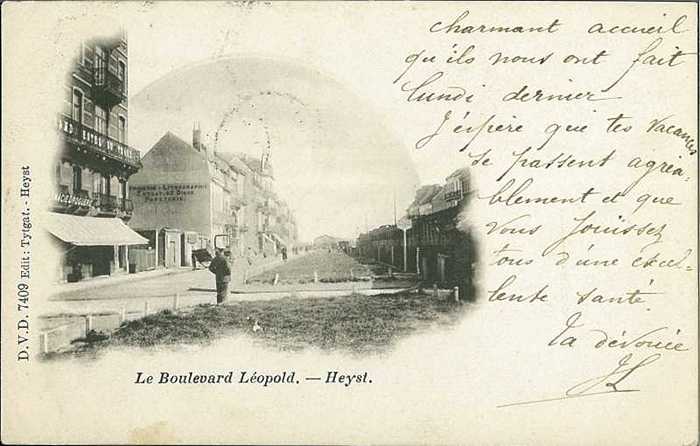 charmant accueil
qu'ils nous ont fait
lundi dernier
J'espère que tes vacances
se passent agréa-
blement et que
vous jouissez
tous d'une excel-
lente santé.
Ta dévouée
JL
GRAND HOTEL DU PHARE
IMPRIMERIE - LITHOGRAPHIE
PAPETERIE
D.V.D. 7409 Edit: Tytgat. - Heyst
Le Boulevard Léopold. — Heyst.